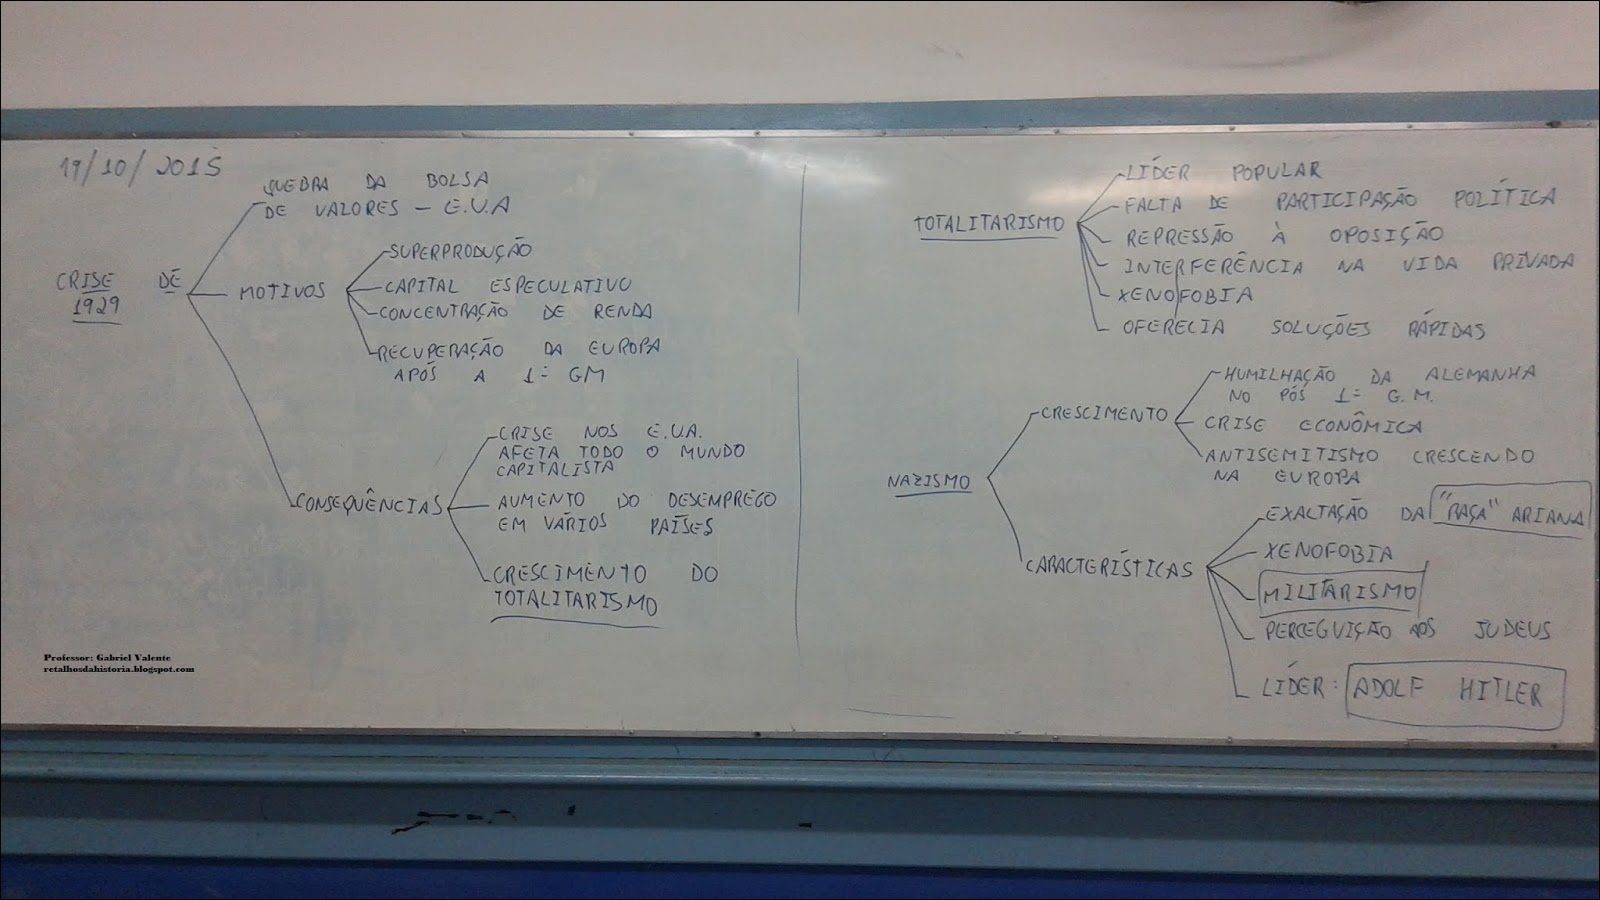 19/10/2015
QUEBRA DA BOLSA
DE VALORES - E.U.A
CRISE DE
1929
MOTIVOS
SUPERPRODUÇÃO
CAPITAL ESPECULATIVO
CONCENTRAÇÃO DE RENDA
RECUPERAÇÃO DA EUROPA
APÓS A 1ª GM
CONSEQUÊNCIAS
CRISE NOS E.U.A.
AFETA TODO O MUNDO
CAPITALISTA
AUMENTO DO DESEMPREGO
EM VÁRIOS PAÍSES
CRESCIMENTO DO
TOTALITARISMO
TOTALITARISMO
LÍDER POPULAR
FALTA DE PARTICIPAÇÃO POLÍTICA
REPRESSÃO À OPOSIÇÃO
INTERFERÊNCIA NA VIDA PRIVADA
XENOFOBIA
OFERECIA SOLUÇÕES RÁPIDAS
NAZISMO
CRESCIMENTO
HUMILHAÇÃO DA ALEMANHA
NO PÓS 1ª G.M.
CRISE ECONÔMICA
ANTISEMITISMO CRESCENDO
NA EUROPA
CARACTERÍSTICAS
EXALTAÇÃO DA "RAÇA" ARIANA
XENOFOBIA
MILITARISMO
PERCEGUIÇÃO AOS JUDEUS
LÍDER: ADOLF HITLER
Professor: Gabriel Valente
retalhosdahistoria.blogspot.com